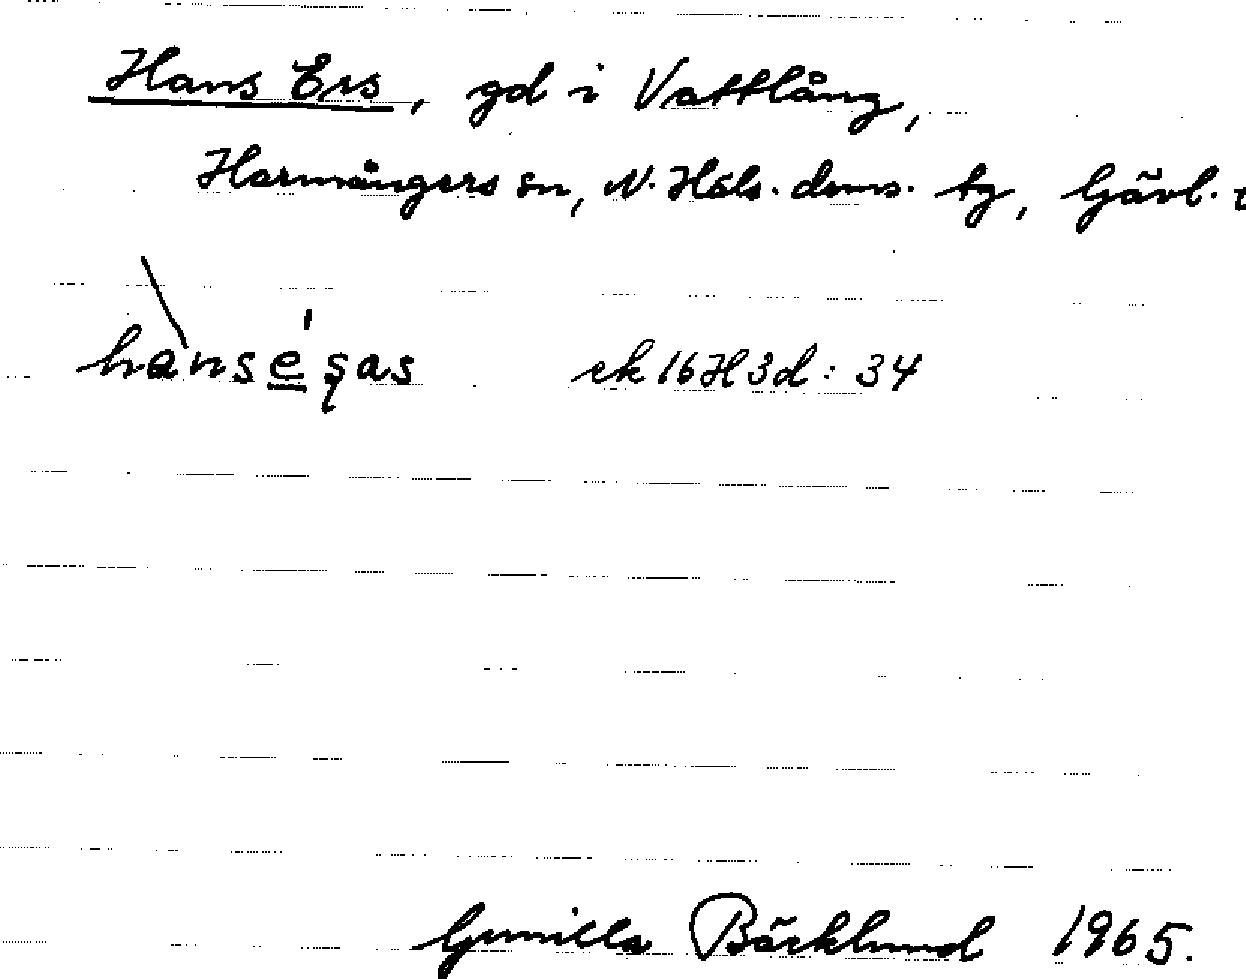 Hans Ers, gd i Vattlång,
Harmångers sn, N. Häls. doms. tg, Gävl.
hanséşas ek 16H3d: 34
Gunilla Bäcklund 1965.